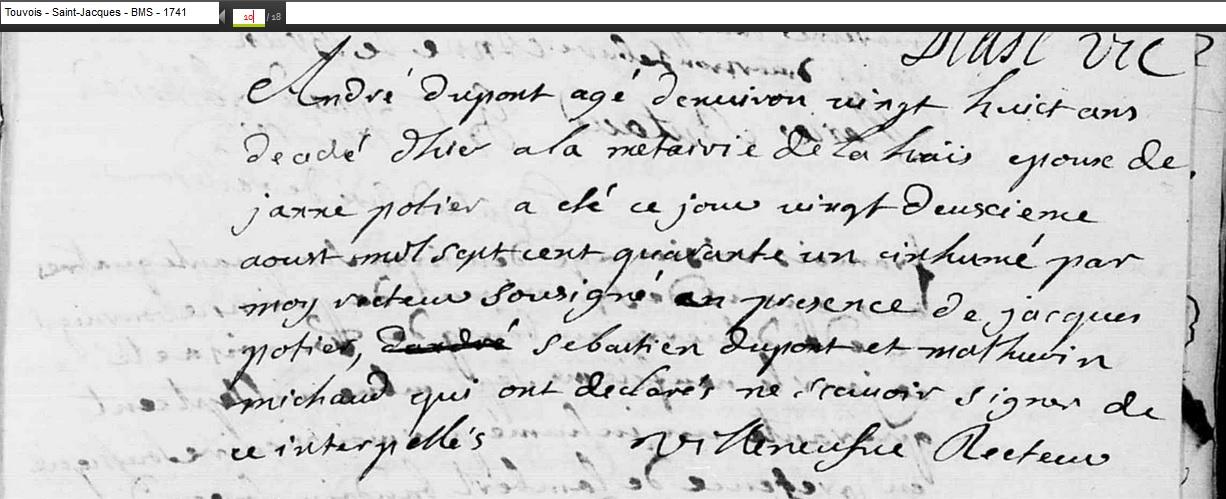 Touvois - Saint-Jacques - BMS - 1741
10 / 18
vic
André dupont agé denuiron vingt huict ans
decedé dhier a la metairie de la hais epoux de
janne potier a eté ce jour vingt deuxcieme
aoust mil sept cent quarante un inhumé par
moy recteur sousigné en presence de jacques
potier, sebastien dupont et mathurin
michaud qui ont declarés ne scauoir signer de
ce interpellés Recteur